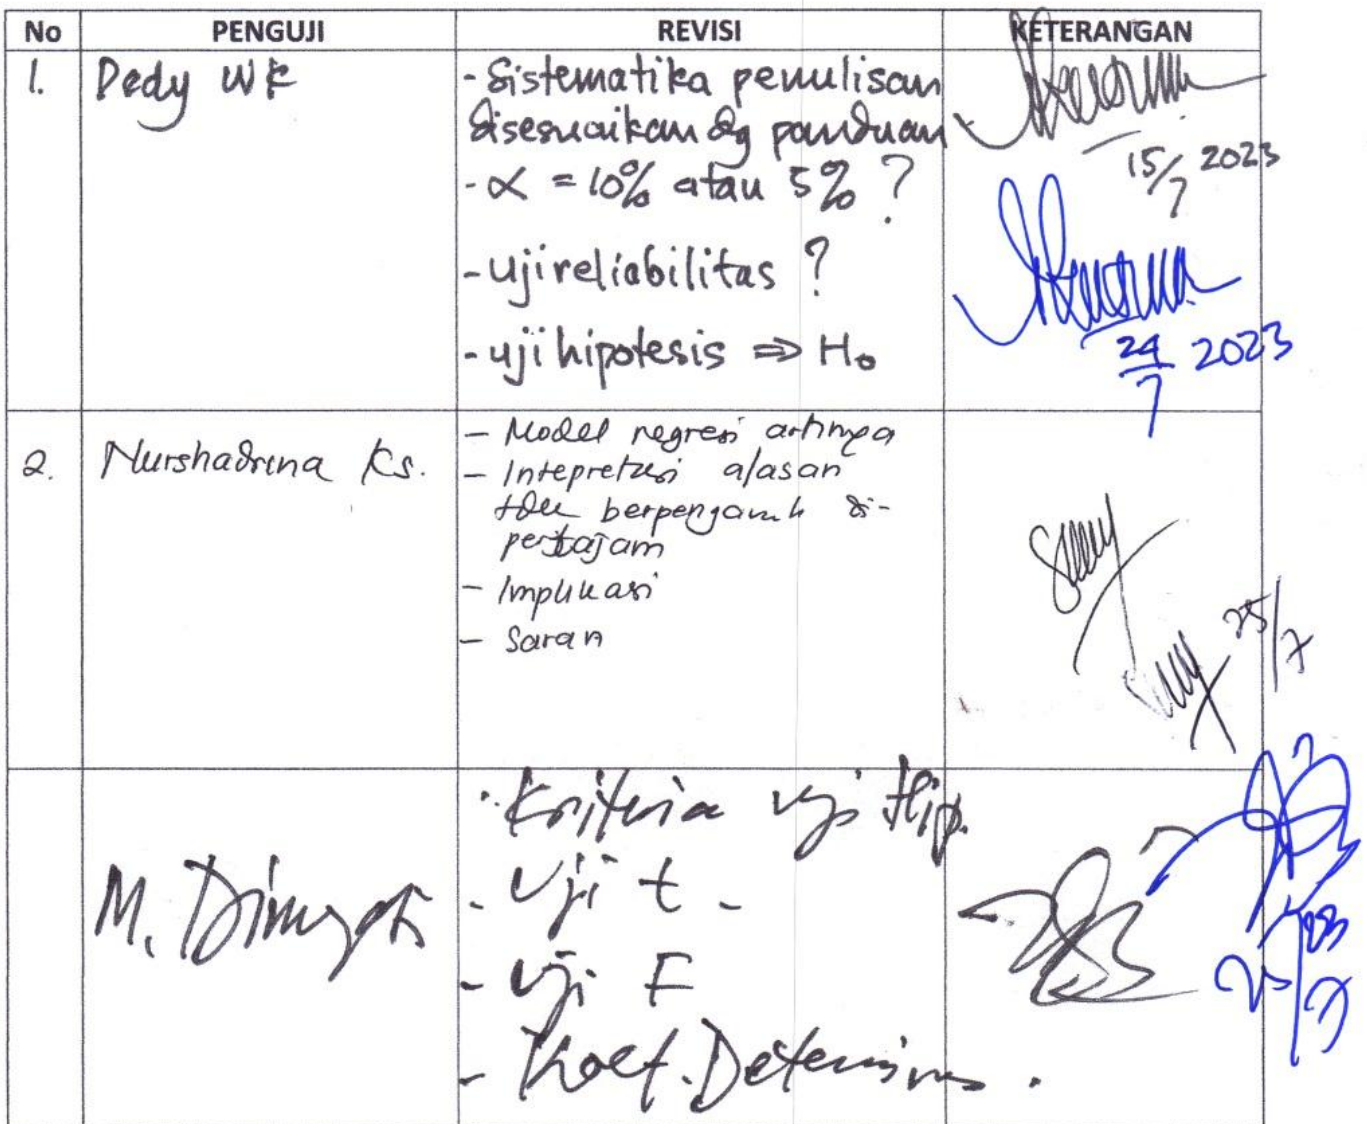 No PENGUJI REVISI KETERANGAN
1. Dedy WK
- Sistematika penulisan
disesuaikan dg panduan
- α = 10% atau 5% ?
- uji reliabilitas ?
- uji hipotesis ⇒ H₀
15/7 2023
24/7 2023
2. Nurshadrina Ks.
- Model regresi artinya
- Intepretasi alasan
tdk berpengaruh di-
pertajam
- Implikasi
- Saran
25/7
M. Dimyati
- Kriteria uji Hip.
- Uji t -
- Uji F
- Koef. Determinas.